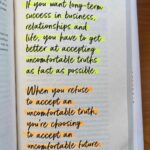 If you want long-term
success in business,
relationships and
life, you have to get
better at accepting
uncomfortable truths
as fast as possible.
When you refuse
to accept an
uncomfortable truth,
you're choosing
to accept an
uncomfortable future.